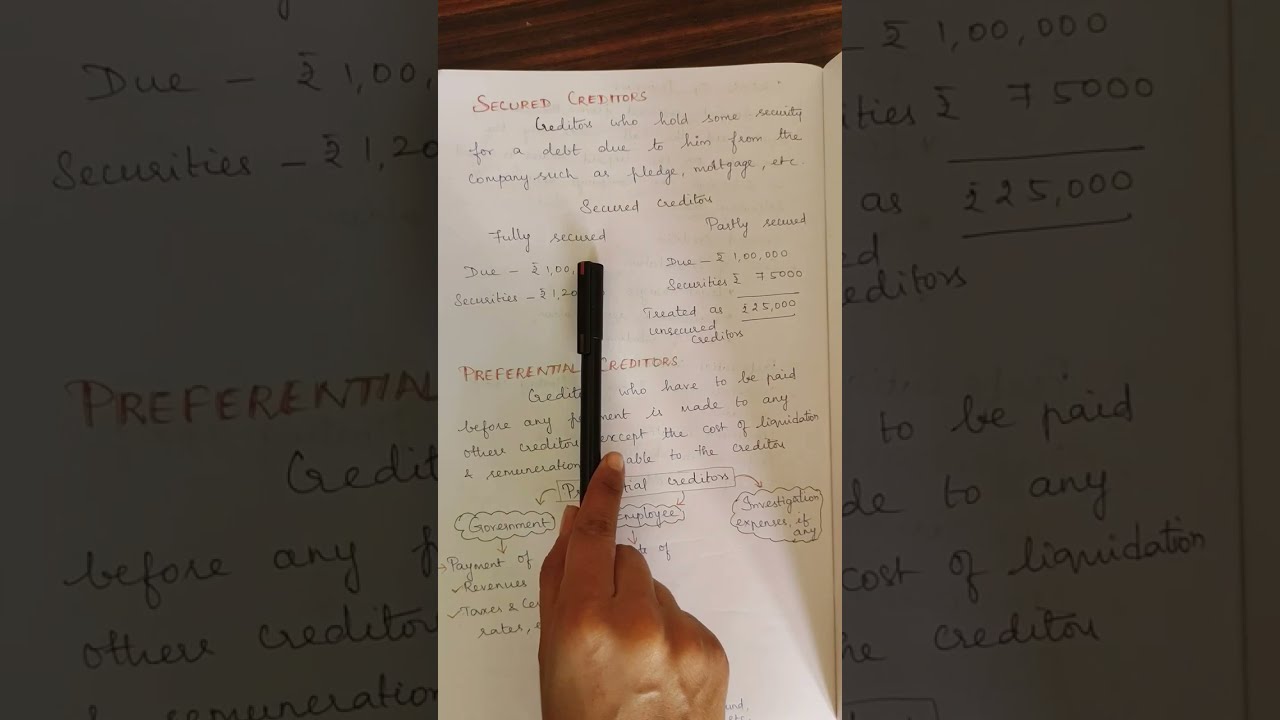 SECURED CREDITORS
Creditors who hold some security
for a debt due to him from the
company such as pledge, mortgage, etc.
Secured creditors
Fully secured
Partly secured
Due - ₹ 1,00,
Securities - ₹ 1,20
Due - ₹ 1,00,000
Securities ₹ 75000
Treated as ₹ 25,000
unsecured
creditors
PREFERENTIAL CREDITORS
who have to be paid
before any is made to any
other creditors except the cost of liquidation
& remuneration to the creditors
creditors
Government
Employee
Investigation
expenses, if
any
Payment of
Revenues
Taxes &
rates,
of